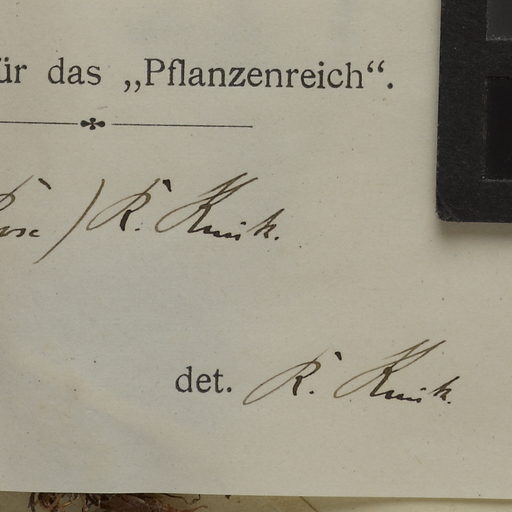 für das „Pflanzenreich“.
) R. Knuth.
det. R. Knuth.